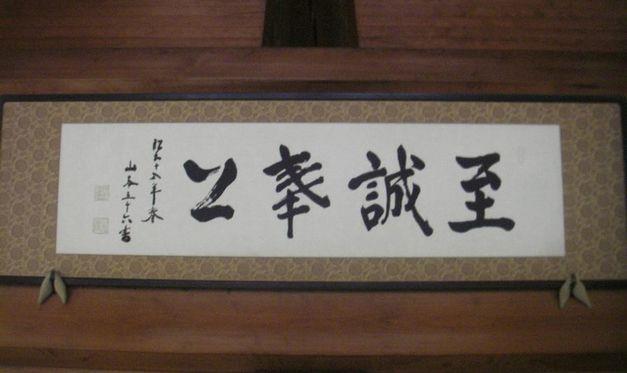 至誠奉公
昭和十五年春
山本五十六書